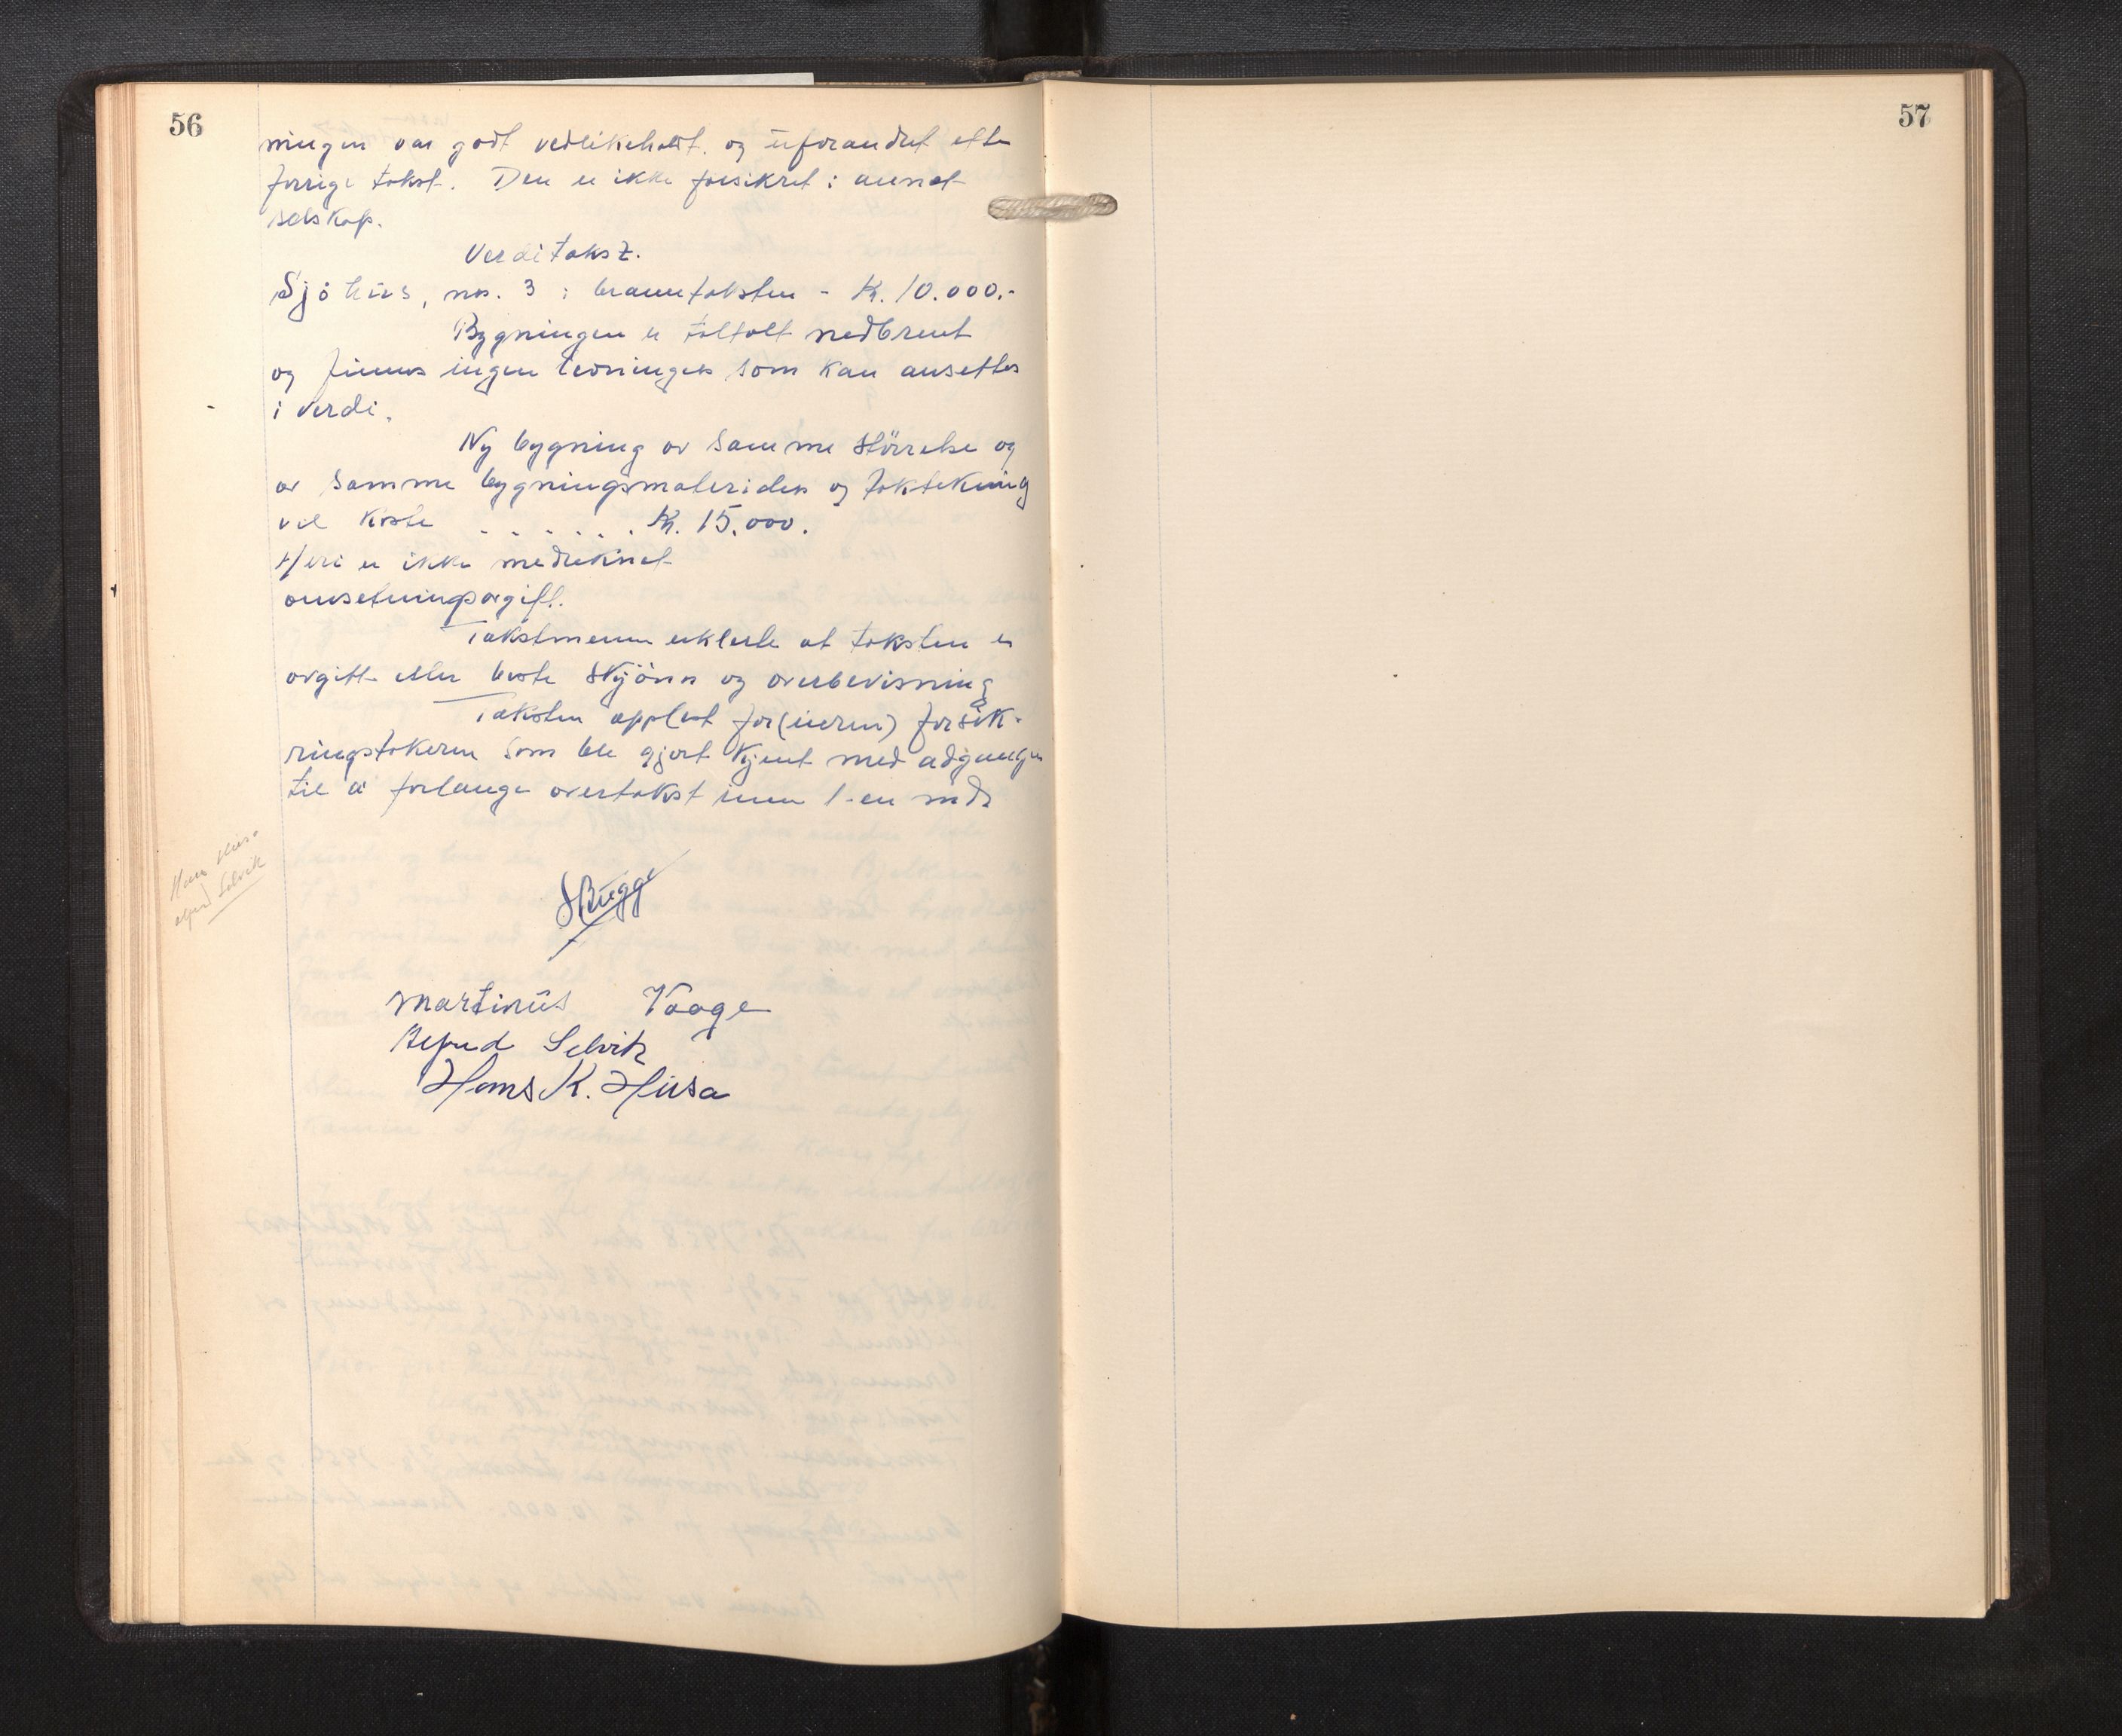 56
ningen var godt vedlikeholdt. og uforandret efter
forrige takst. Den er ikke forsikret i annet
selskap.
Verditakst.
Sjöhus, nr. 3 i branntaksten - Kr. 10.000.-
Bygningen er totalt nedbrent
og finnes ingen levninger som kan ansettes
i verdi.
Ny bygning av samme störrelse og
av samme bygningsmaterialer og taktekning
vil koste . . . . . . Kr. 15.000.
Heri er ikke medreknet
omsetningsavgift.
Takstmenn erklerte at taksten er
avgitt etter beste skjönn og overbevisning
Taksten opplest for (eieren) forsik-
ringstakeren som ble gjort kjent med adgangen
til å forlange overtakst innen 1-en mnd
Hans Hus.
Selvik
SBugge
Martinus Vaage
Selvik
Hans K. Husa
57